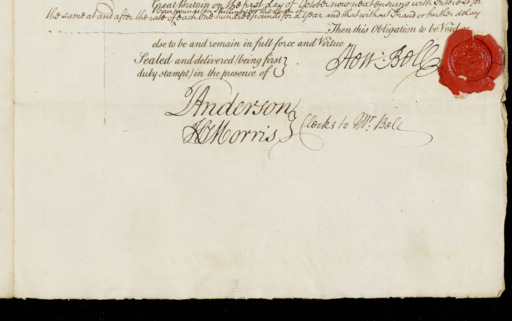 Great Britain on the first day of October now next ensuing with Interest for
the same at and after the rate of each One hundred pounds for a Year and that without Fraud or further delay
Then this Obligation to be Void or
else to be and remain in full force and Virtue
Sealed and delivered (being first
duly stampt) in the presence of
How: Bell
Anderson
Morris
Clerks to Mr. Bell